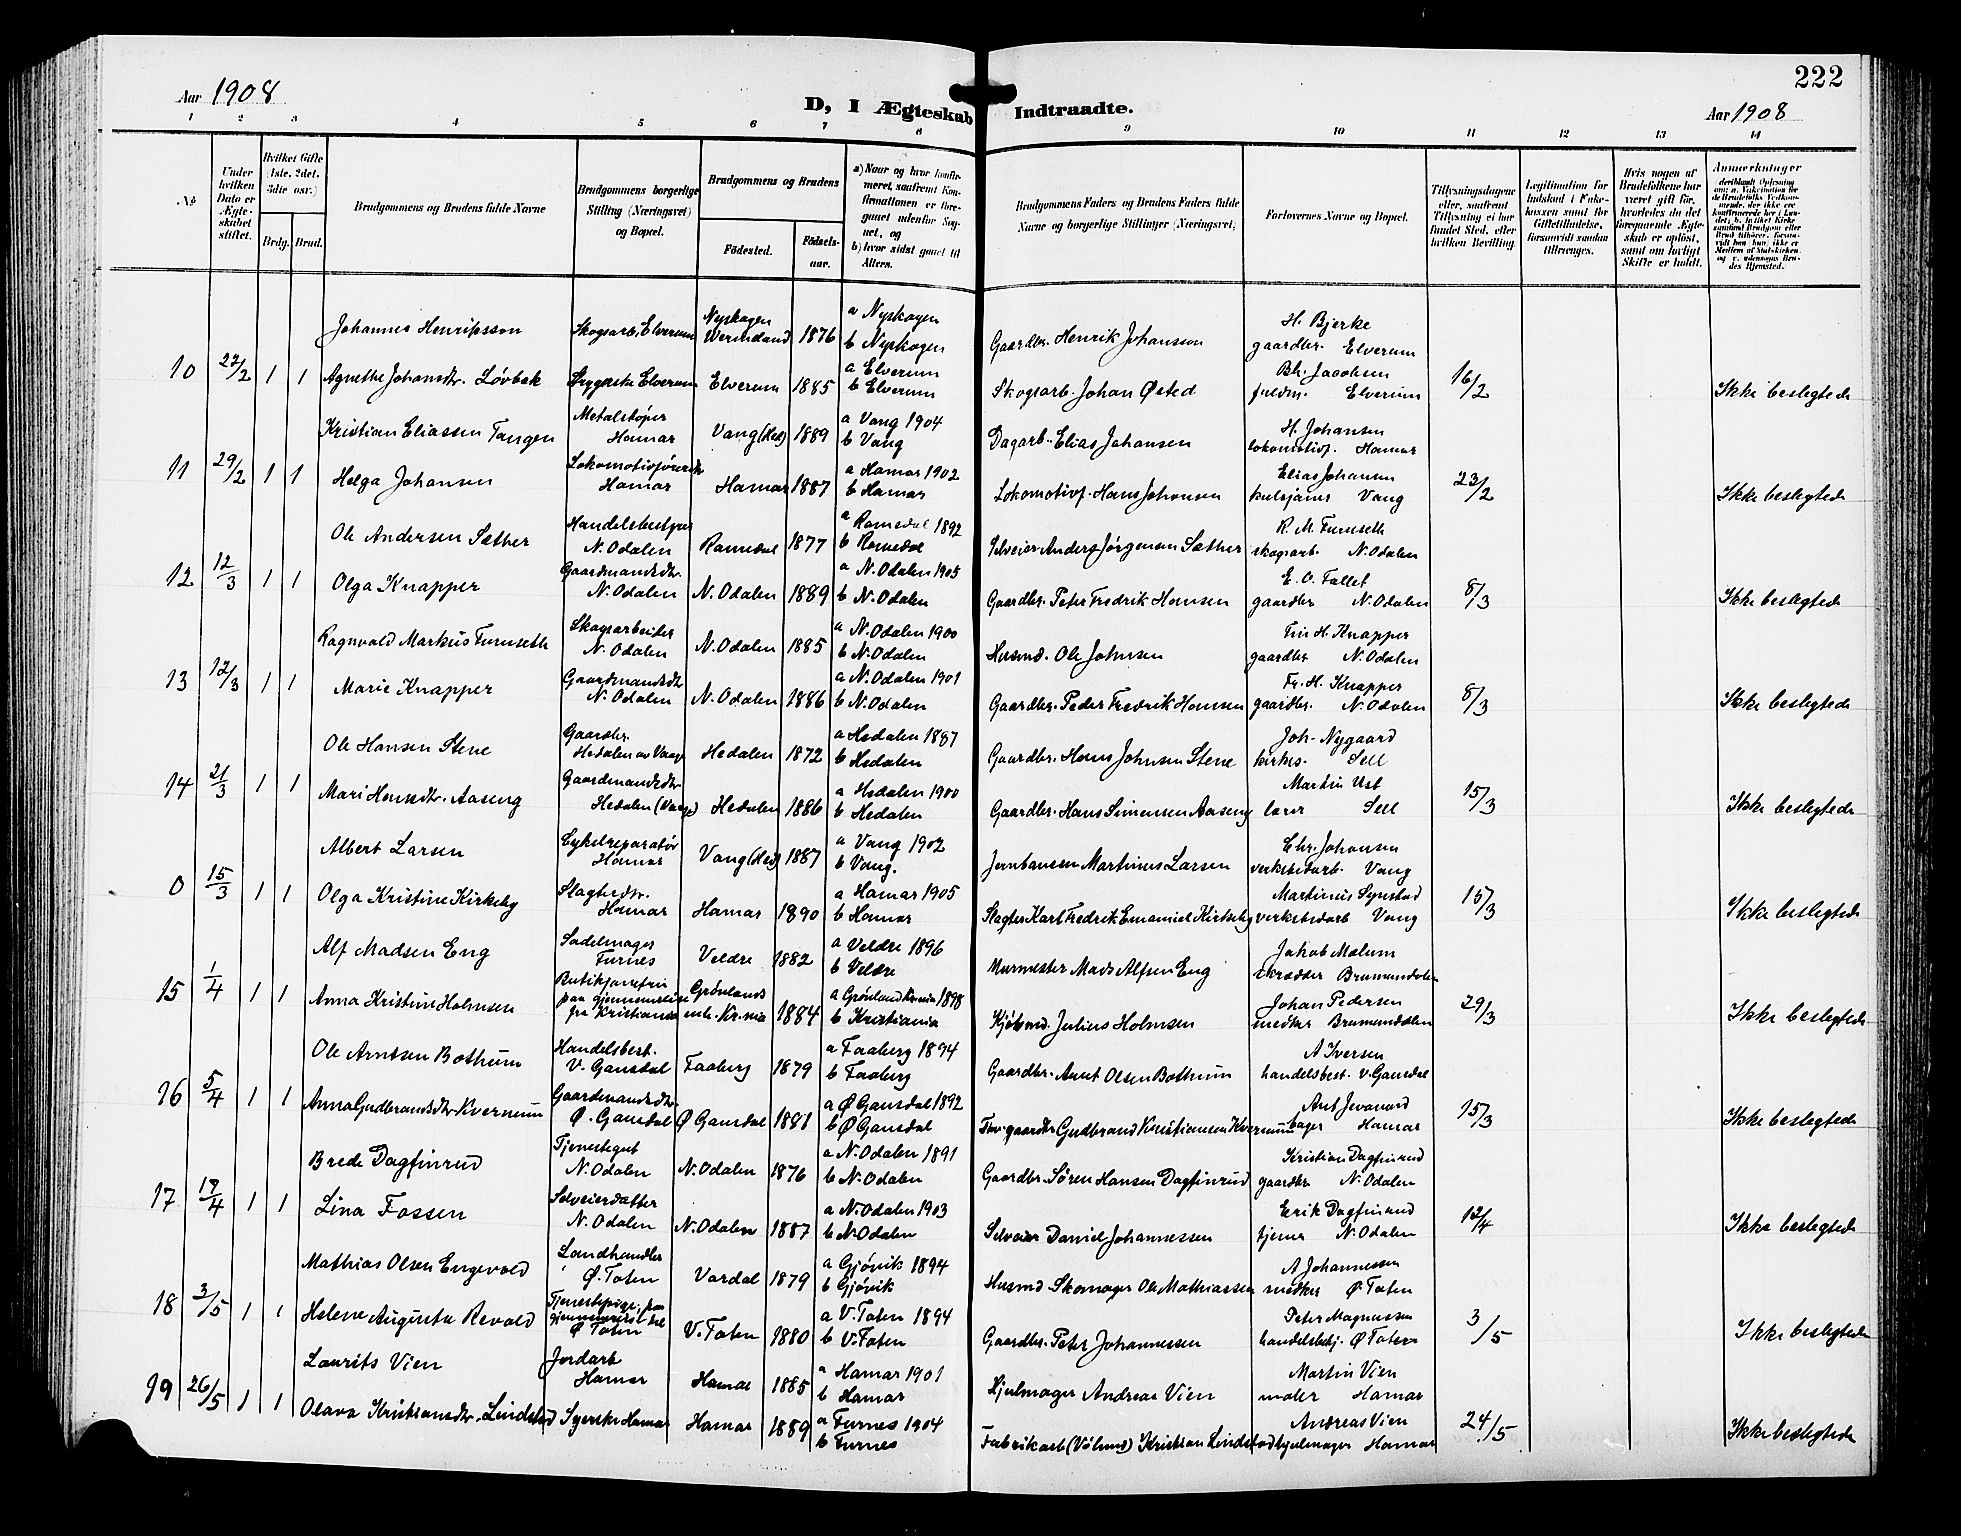 222
Aar 1908
D, I Ægteskab Indtraadte.
Aar 1908
1 2 3 4 5 6 7 8 9 10 11 12 13 14
No
Under hvilken Dato er Ægteskabet stiftet.
Hvilket Gifte (1ste, 2det, 3die osv.)
Brdg. Brud.
Brudgommens og Brudens fulde Navne
Brudgommens borgerlige Stilling (Næringsvei) og Bopæl.
Brudgommens og Brudens
Födested. Födsels-aar.
a) Naar og hvor konfirmeret, saafremt Konfirmationen er foregaaet udenfor Sognet, og
b) hvor sidst gaaet til Alters.
Brudgommens Faders og Brudens Faders fulde Navne og borgerlige Stillinger (Næringsvei)
Forlovernes Navne og Bopæl.
Tillysningsdagene eller, saafremt Tillysning ei har fundet Sted, efter hvilken Bevilling.
Legitimation for Indskud i Enkekassen samt for Giftetilladelse, forsaavidt saadan tiltrænges.
Hvis nogen af Brudefolkene har været gift för, hvorledes da det foregaaende Ægteskab er oplöst, samt om lovligt Skifte er holdt.
Anmerkninger
Johannes Henriksson Skogsarb. Elverum Nyskogen Wermland 1876 a Nyskogen b Nyskogen Gaardbr. Henrik Johansson H. Bjerke gaardbr. Elverum
10 22/2 1 1 Agnethe Johansdtr. Løvbak Elverum Elverum 1885 a Elverum b Elverum Skogsarb. Johan Østed Jacobsen Elverum 16/2 Ikke beslegtede
Kristian Eliassen Tangen Metalstøper Hamar Vang (Hed) 1889 a Vang 1904 b Vang Dagarb. Elias Johansen H. Johansen lokomotivf. Hamar
11 29/2 1 1 Helga Johansen Hamar Hamar 1887 a Hamar 1902 b Hamar Lokomotivf. Hans Johansen Elias Johansen Vang 23/2 Ikke beslegtede
Ole Andersen Sæther Handelsbestyrer N. Odalen Romedal 1877 a Romedal 1892 b Romedal Selveier Anders Jørgensen Sæther R. M. Furuseth skogsarb. N. Odalen
12 12/3 1 1 Olga Knapper Gaardmandsdtr. N. Odalen N. Odalen 1889 a N. Odalen 1905 b N. Odalen Gaardbr. Peter Fredrik Hansen E. O. Fallet gaardbr N. Odalen 8/3 Ikke beslegtede
Ragnvald Markus Furuseth Skogsarbeider N. Odalen N. Odalen 1885 a N. Odalen 1900 b N. Odalen Husmd. Ole Johnsen H. Knapper gaardbr. N. Odalen
13 12/3 1 1 Marie Knapper Gaardmandsdtr N. Odalen N. Odalen 1886 a N. Odalen 1901 b N. Odalen Gaardbr. Peder Fredrik Hansen Fr. H. Knapper gaardbr. N. Odalen 8/3 Ikke beslegtede
Ole Hansen Stene Gaardbr. Hedalen av Vaage Hedalen 1872 a Hedalen 1887 b Hedalen Gaardbr. Hans Johnsen Stene Joh. Nygaard kirkes. Sell
14 21/3 1 1 Mari Hansdtr. Aaseng Gaardmandsdtr Hedalen (Vaage) Hedalen 1886 a Hedalen 1900 b Hedalen Gaardbr. Hans Simensen Aaseng Martin Ust lærer Sell 15/3 Ikke beslegtede
Albert Larsen Cykelreparatør Hamar Vang (Hed) 1887 a Vang 1902 b Vang. Martinus Larsen Chr. Johansen verkstedarb. Vang
0 15/3 1 1 Olga Kristine Kirkeby Slagterdtr. Hamar Hamar 1890 a Hamar 1905 b Hamar Slagter Karl Fredrik Emanuel Kirkeby Martinus Synstad verkstedarb Vang 15/3 Ikke beslegtede
Alf Madsen Eng Sadelmager Furnes Veldre 1882 a Veldre 1896 b Veldre Murmester Mads Alfsen Eng Jakob Mælum skrædder Brumunddalen
15 1/4 1 1 Anna Kristine Holmsen Butikjomfru paa gjennemreise fra Kristiania Grønlands mh. Kr.nia 1884 a Grønland Kr.nia 1898 b Kristiania Kjøbmd. Julius Holmsen Johan Pedersen Brumunddalen 29/3 Ikke beslegtede
Ole Arntsen Bothum Handelsbest. V. Gausdal Faaberg 1879 a Faaberg 1894 b Faaberg Gaardbr. Arnt Olsen Bothum A Iversen handelsbest. V. Gausdal
16 5/4 1 1 Anna Gudbrandsdtr. Kvernum Gaardmandsdtr. Ø. Gausdal Ø Gausdal 1881 a Ø Gausdal 1892 b Ø Gausdal gaardbr Gudbrand Kristiansen Kvernum bager Hamar 15/3 Ikke beslegtede
Brede Dagfinrud Tjenestegut N. Odalen N. Odalen 1876 a N. Odalen 1891 b N. Odalen Gaardbr. Søren Hansen Dagfinrud Kristian Dagfinrud gaardbr N. Odalen
17 /4 1 1 Lina Fossen Selveierdatter N. Odalen N. Odalen 1887 a N. Odalen 1903 b N. Odalen Selveier Daniel Johannessen Erik Dagfinrud tjener N. Odalen 12/4 Ikke beslegtede
Mathias Olsen Engevold Landhandler Ø. Toten Vardal 1879 a Gjøvik 1894 b Gjøvik Husmd Skomager Ole Mathiassen A Johannessen Ø. Toten
18 3/5 1 1 Helene Augusta Revold Tjenestepige, Ø Toten V. Toten 1880 a V. Toten 1894 b V. Toten Gaardbr. Peter Johannessen Peter Magnussen handelsbetj. Ø Toten 3/5 Ikke beslegtede
Laurits Vien Jordarb Hamar Hamar 1885 a Hamar 1901 b Hamar Hjulmager Andreas Vien Martin Vien maler Hamar
19 26/5 1 1 Olava Kristiansdtr. Lindstad Syerske Hamar Hamar 1889 a Furnes 1904 b Furnes Fabrikarb Kristian Lindstad Andreas Vien hjulmager Hamar 24/5 Ikke beslegtede